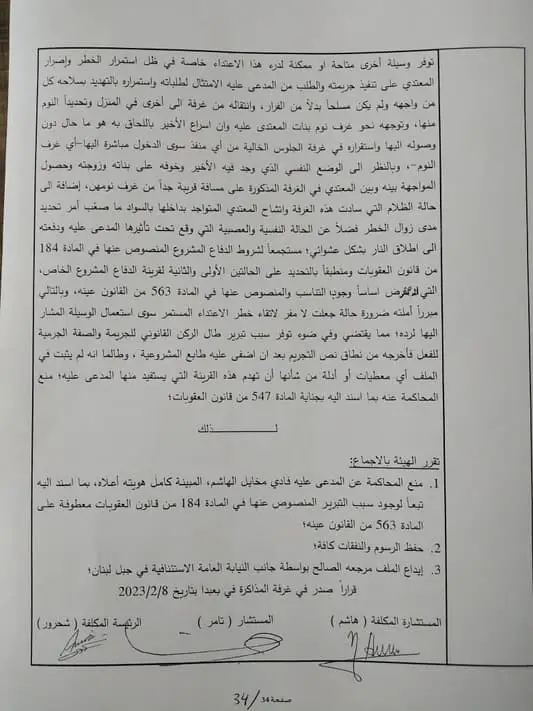 توفر وسيلة أخرى متاحة او ممكنة لدرء هذا الاعتداء خاصة في ظل استمرار الخطر وإصرار
المعتدي على تنفيذ جريمته والطلب من المدعى عليه الامتثال لطلباته واستمراره بالتهديد بسلاحه كل
من واجهه ولم يكن مسلحاً بدلاً من الفرار، وانتقاله من غرفة الى أخرى في المنزل وتحديداً النوم
منها، وتوجهه نحو غرف نوم بنات المعتدى عليه وان اسراع الأخير باللحاق به هو ما حال دون
وصوله اليها واستقراره في غرفة الجلوس الخالية من أي منفذ سوى الدخول مباشرة اليها–أي غرف
النوم–، وبالنظر الى الوضع النفسي الذي وجد فيه الأخير وخوفه على بناته وزوجته وحصول
المواجهة بينه وبين المعتدي في الغرفة المذكورة على مسافة قريبة جداً من غرف نومهن، إضافة الى
حالة الظلام التي سادت هذه الغرفة واتشاح المعتدي المتواجد بداخلها بالسواد ما صعّب أمر تحديد
مدى زوال الخطر فضلاً عن الحالة النفسية والعصبية التي وقع تحت تأثيرها المدعى عليه ودفعته
الى اطلاق النار بشكل عشوائي؛ مستجمعاً لشروط الدفاع المشروع المنصوص عنها في المادة 184
من قانون العقوبات ومنطبقاً بالتحديد على الحالتين الأولى والثانية لقرينة الدفاع المشروع الخاص،
التي أساساً وجود التناسب والمنصوص عنها في المادة 563 من القانون عينه، وبالتالي
مبرراً أملته ضرورة حالة جعلت لا مفر لاتقاء خطر الاعتداء المستمر سوى استعمال الوسيلة المشار
اليها لرده؛ مما يقتضي وفي ضوء توفر سبب تبرير طال الركن القانوني للجريمة والصفة الجرمية
للفعل فأخرجه من نطاق نص التجريم بعد ان اضفى عليه طابع المشروعية ، وطالما انه لم يثبت في
الملف أي معطيات أو أدلة من شأنها أن تهدم هذه القرينة التي يستفيد منها المدعى عليه؛ منع
المحاكمة عنه بما اسند اليه بجناية المادة 547 من قانون العقوبات؛
لـــــذلك
تقرر الهيئة بالاجماع:
1. منع المحاكمة عن المدعى عليه فادي مخايل الهاشم، المبينة كامل هويته أعلاه، بما اسند اليه
تبعاً لوجود سبب التبرير المنصوص عنها في المادة 184 من قانون العقوبات معطوفة على
المادة 563 من القانون عينه؛
2. حفظ الرسوم والنفقات كافة؛
3. إيداع الملف مرجعه الصالح بواسطة جانب النيابة العامة الاستئنافية في جبل لبنان؛
قراراً صدر في غرفة المذاكرة في بعبدا بتاريخ 2023/2/8
المستشارة المكلفة ( هاشم ) المستشار ( تامر ) الرئيسة المكلفة ( شحرور )
صفحة 34 / 34